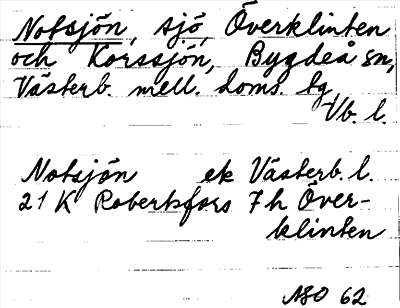 Notsjön, sjö, Överklinten
och Korssjön, Bygdeå sn,
Västerb. mell. doms. tg
Vb. l.
Notsjön ek Västerb. l.
21 K Robertsfors 7 h Över-
klinten
NSO 62